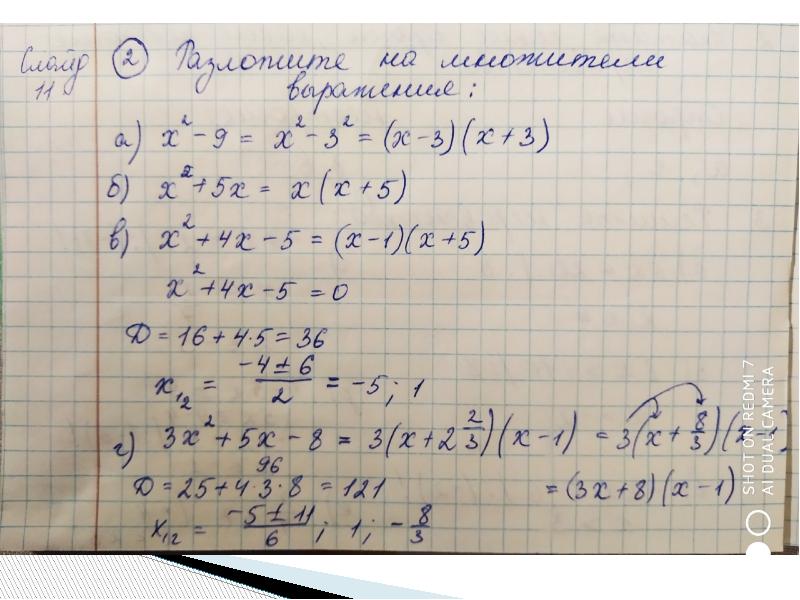 Слайд 11
② Разложите на множители
выражения:
а) x² - 9 = x² - 3² = (x - 3)(x + 3)
б) x² + 5x = x(x + 5)
в) x² + 4x - 5 = (x - 1)(x + 5)
x² + 4x - 5 = 0
D = 16 + 4·5 = 36
x₁,₂ = (-4 ± 6)/2 = -5; 1
г) 3x² + 5x - 8 = 3(x + 2 2/3)(x - 1) = 3(x + 8/3)(x - 1)
96
D = 25 + 4·3·8 = 121 = (3x + 8)(x - 1)
x₁,₂ = (-5 ± 11)/6; 1; -8/3
SHOT ON REDMI 7
AI DUAL CAMERA